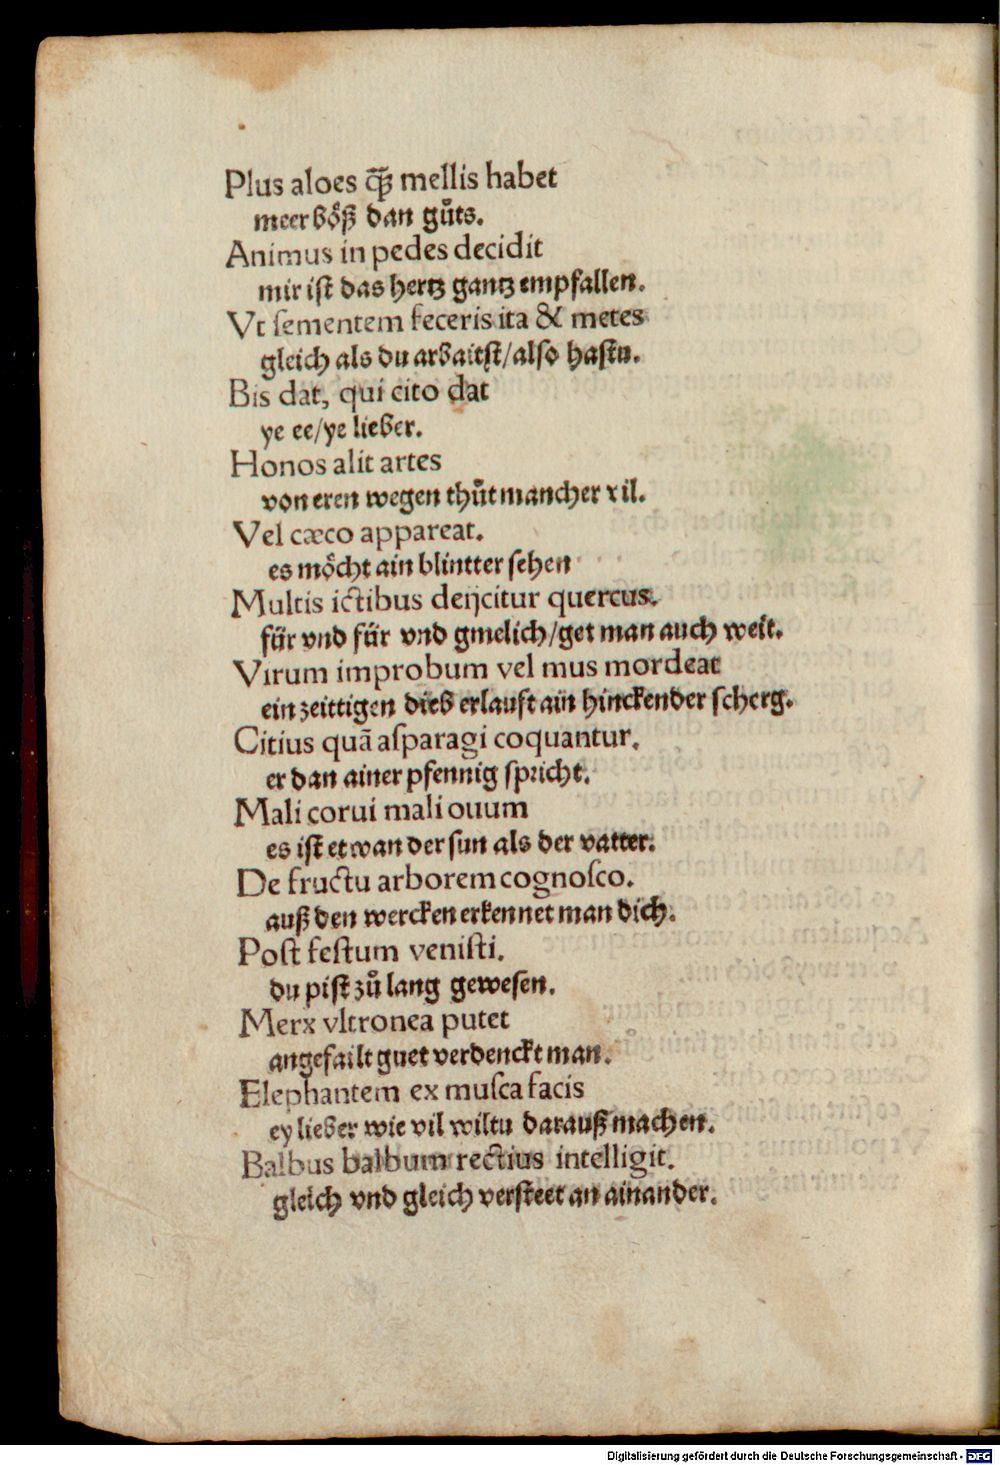 Plus aloes ꝙ̃ mellis habet
meer bôß dan gůts.
Animus in pedes decidit
mir ist das hertz gantz empfallen.
Vt sementem feceris ita & metes
gleich als du arbaitst/also hastu.
Bis dat, qui cito dat
ye ee/ye lieber.
Honos alit artes
von eren wegen thůt mancher vil.
Vel cæco appareat.
es môcht ain blintter sehen
Multis ictibus deijcitur quercus.
für vnd für vnd gmelich/get man auch weit.
Virum improbum vel mus mordeat
ein zeittigen dieb erlauft ain hinckender scherg.
Citius quã asparagi coquantur.
er dan ainer pfennig spricht.
Mali corui mali ouum
es ist etwan der sun als der vatter.
De fructu arborem cognosco.
auß den wercken erkennet man dich.
Post festum venisti.
du pist zů lang gewesen.
Merx vltronea putet
angefailt guet verdenckt man.
Elephantem ex musca facis
ey lieber wie vil wiltu darauß machen.
Balbus balbum rectius intelligit.
gleich vnd gleich versteet an ainander.
Digitalisierung gefördert durch die Deutsche Forschungsgemeinschaft - DFG